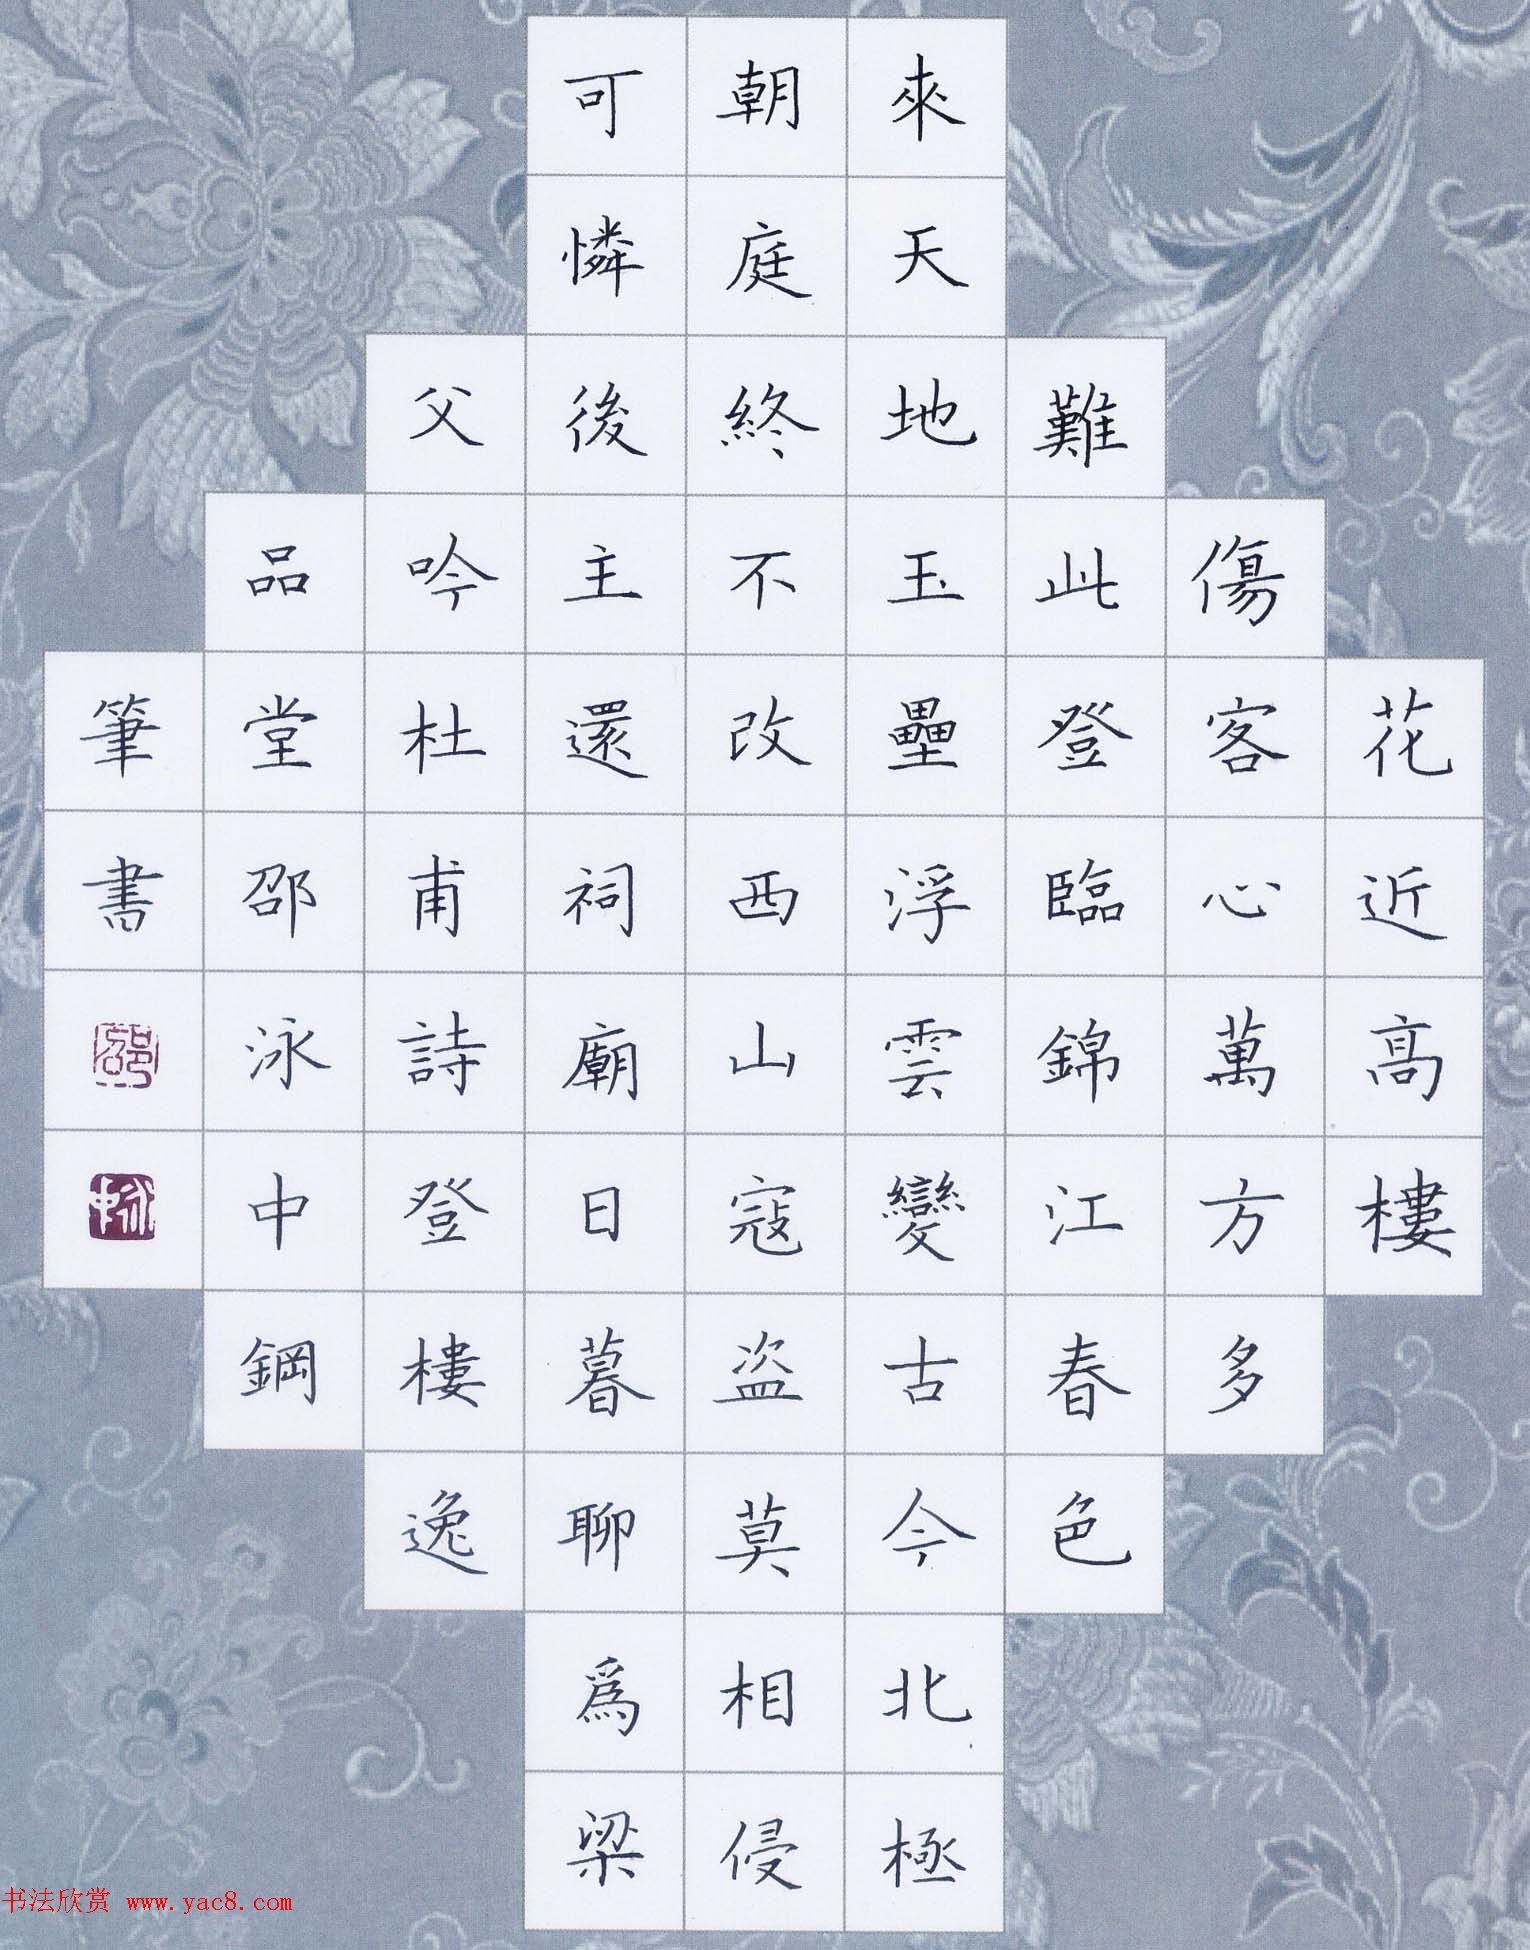 花近高樓
傷客心萬方多
難此登臨錦江春色
來天地玉壘浮雲變古今北極
朝庭終不改西山寇盗莫相侵
可憐後主還祠廟日暮聊爲梁
父吟杜甫詩登樓逸
品堂邵泳中鋼
筆書
邵
泳中
书法欣赏 www.yac8.com